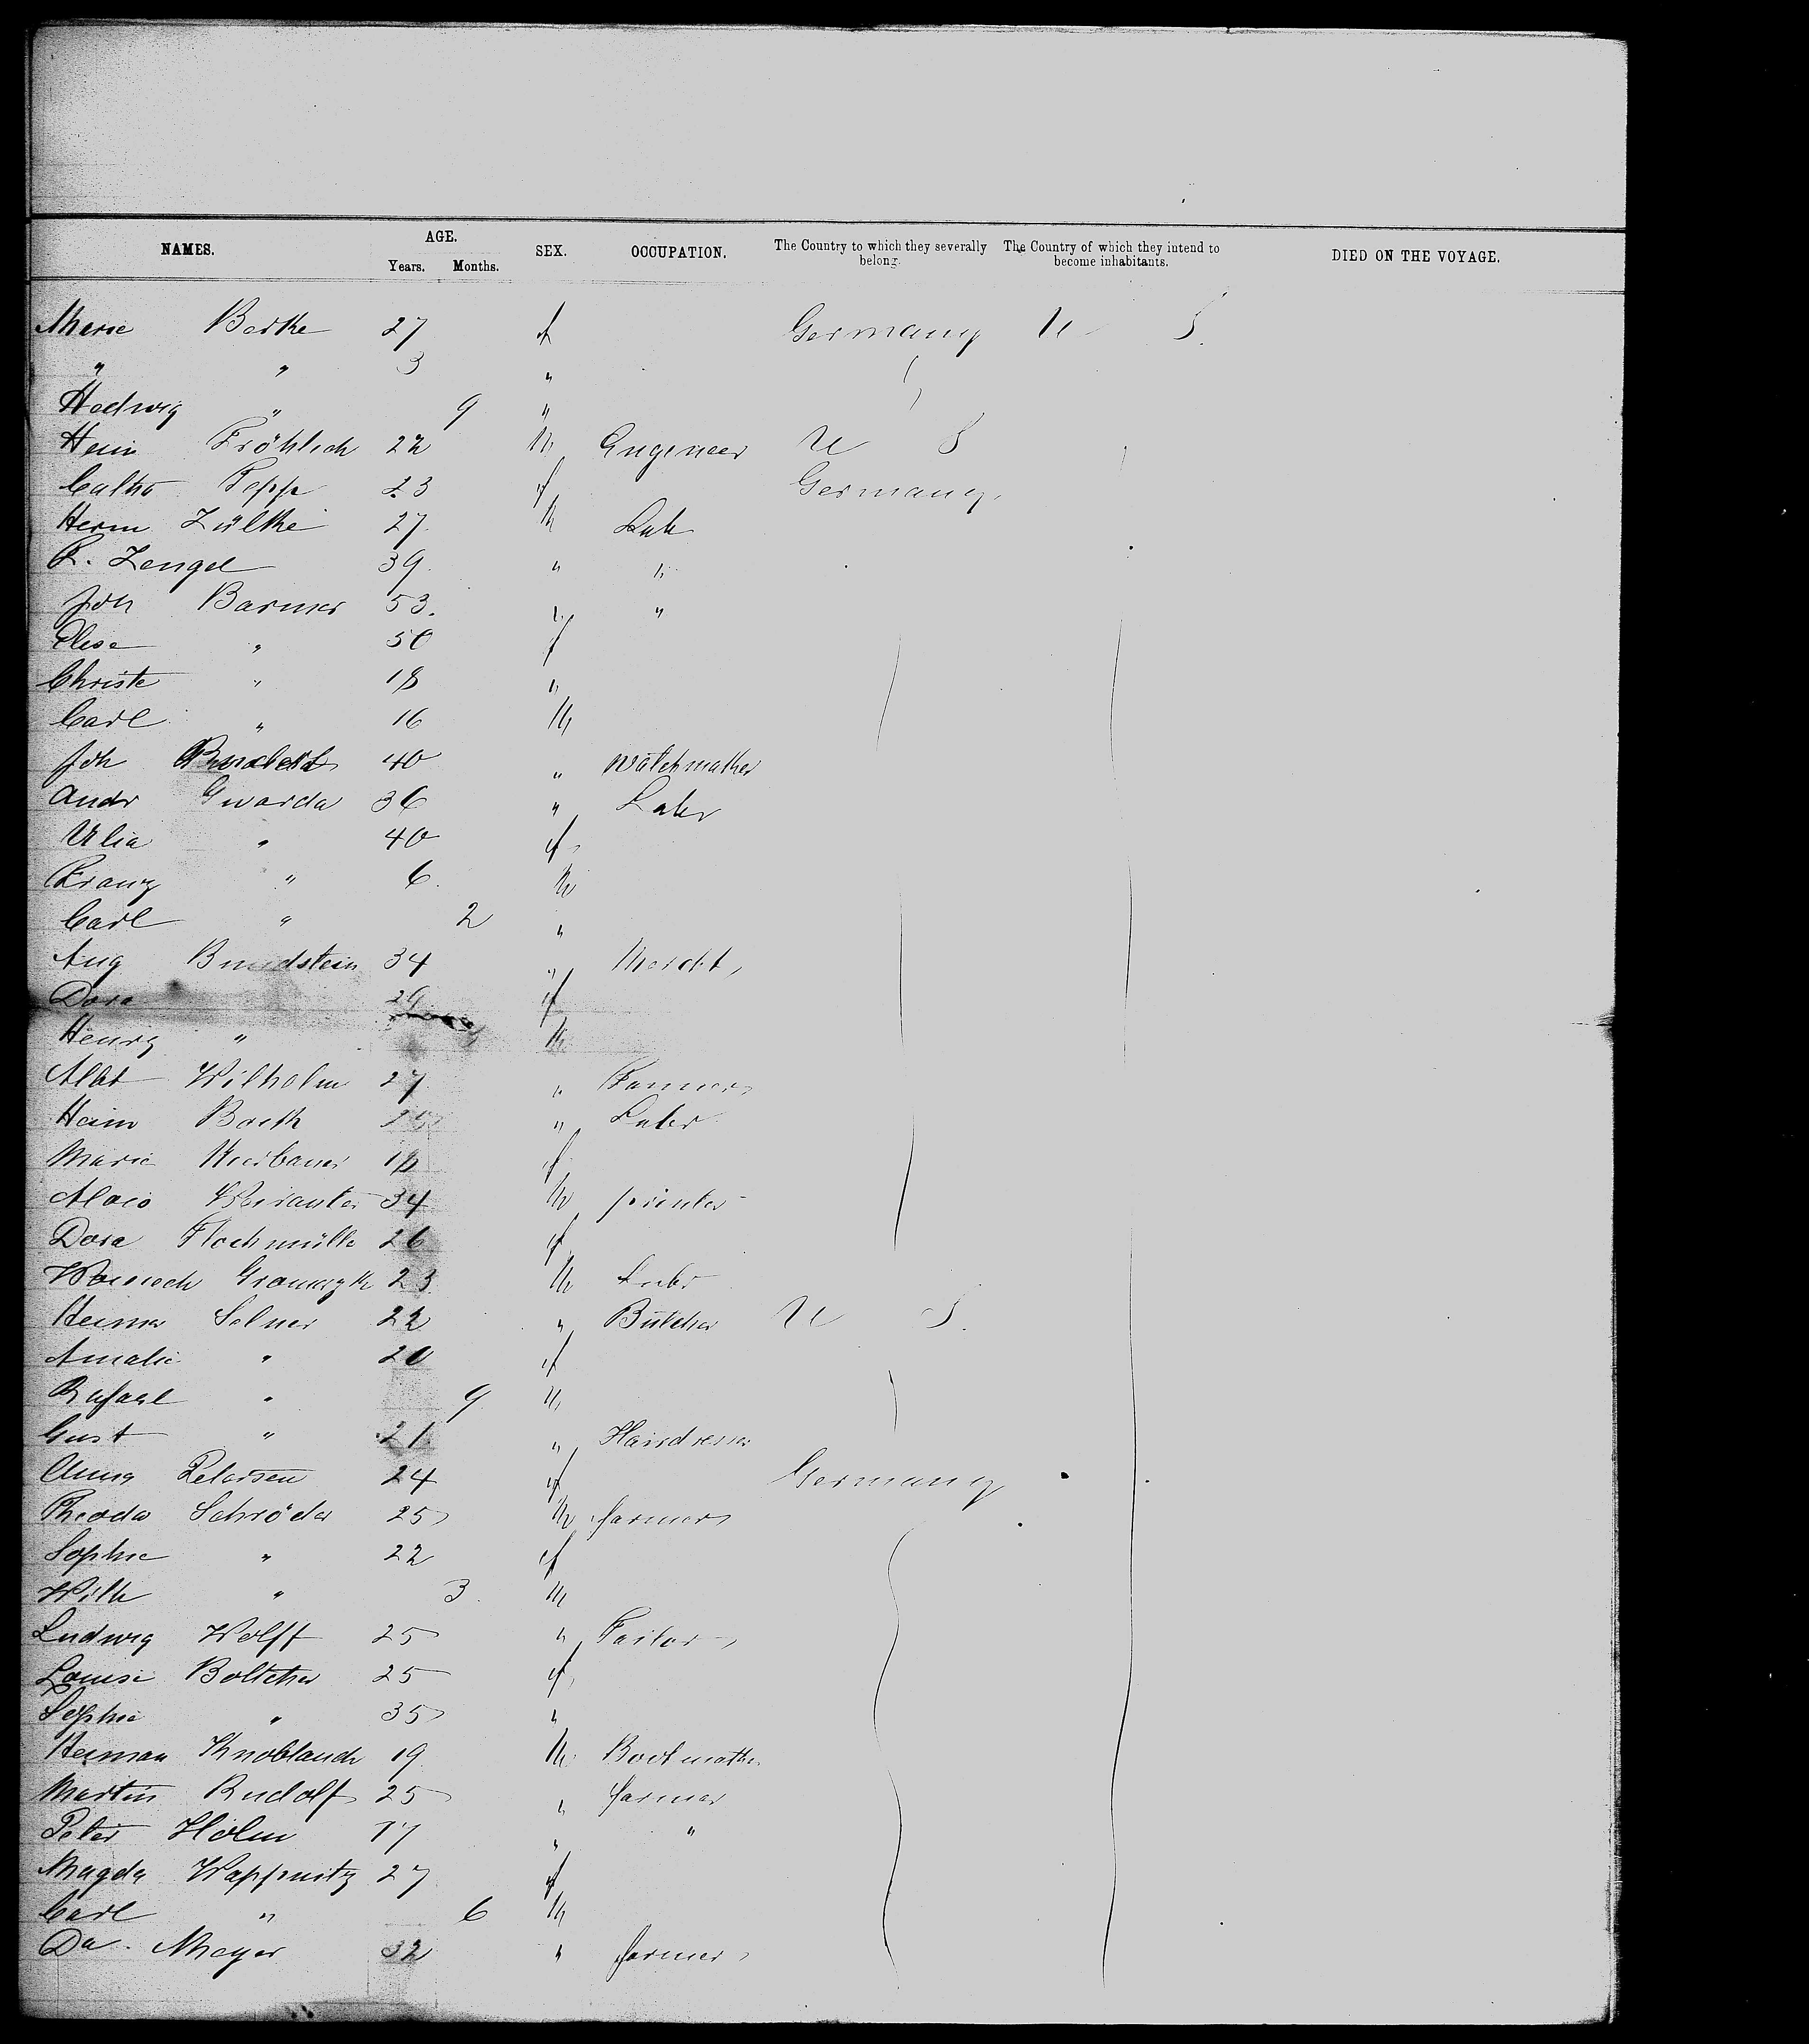 NAMES. AGE. SEX. OCCUPATION. The Country to which they severally belong. The Country of which they intend to become inhabitants. DIED ON THE VOYAGE.
Years. Months.
Marie Berke 27 f Germany U S.
" " 3 "
Hedwig " 9 "
Hein Fröhlich 22 M Engeneer U S
Pepp 23 f Germany
Herm Zülke 27 M Lab
R. Zengel 39 " "
Joh Barmer 53 " "
Elise " 50 f
Christe " 18 "
Carl " 16 M
Joh 40 " Watchmaker
Andr Gwarda 36 " Labr
Ulia " 40 f
Franz " 6 M
Carl " 2 "
Aug 34 " Mercht
Dora 29 f
Henry " M
Albt Wilhelm 27 " Farmer
Hein Barth " Labr
Marie 18 f
Alois 34 M printer
Dora Flochmülle 26 f
23 M Labr
Herma Selner 22 " Butcher U S.
Amalie " 20 f
Rafael " 9 M
Gust " 21 " Hairdresser
Anna Petersen 24 f Germany
Theodor Schröder 25 M farmer
Sophie " 22 f
Wilh " 3 M
Ludwig Wolff 25 " Tailor
Louise Boltcher 25 f
Sophie " 35 "
Herman Knoblauch 19 M Bootmaker
Martin Rudolf 25 " farmer
Peter Holm 17 " "
Magda Wappnitz 27 f
Carl " 6 M
Da. Meyer 32 " farmer